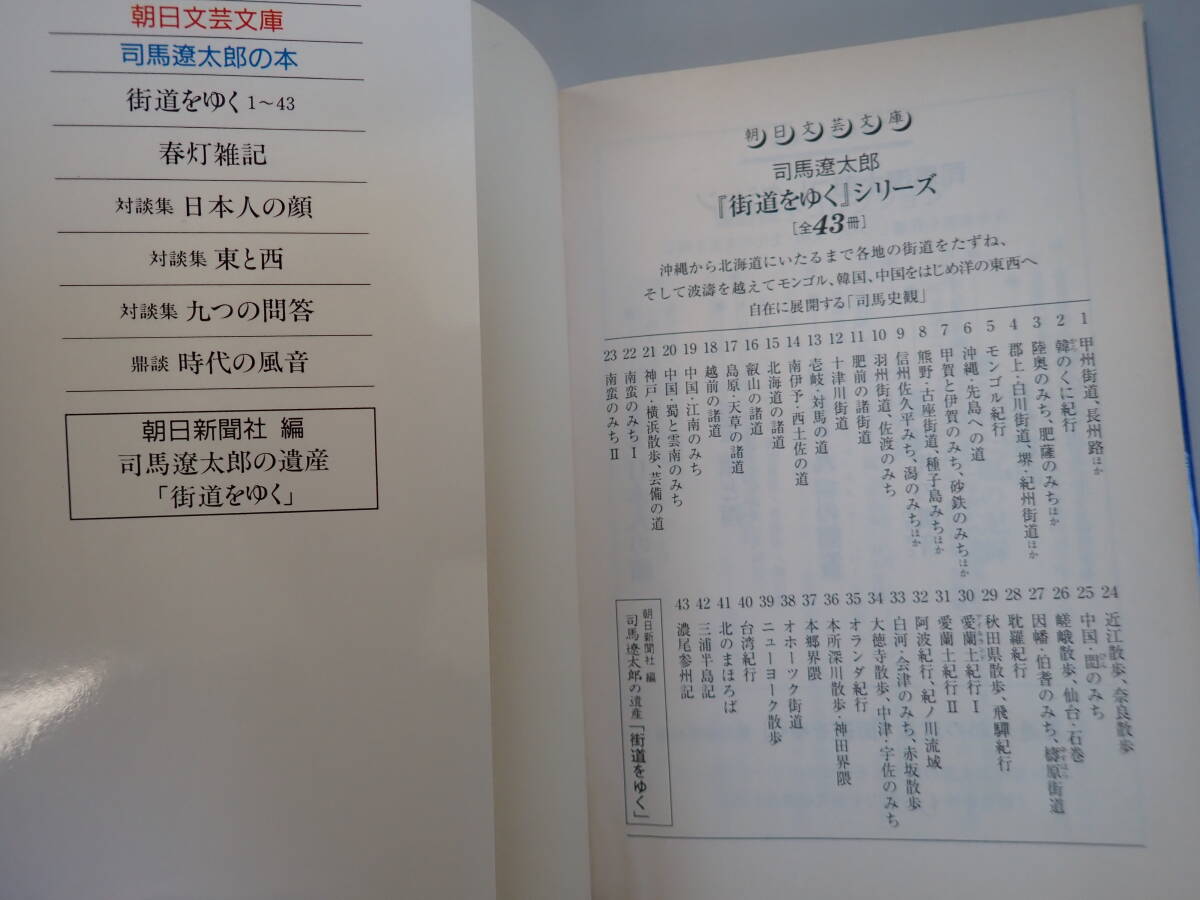 朝日文芸文庫
司馬遼太郎の本
街道をゆく 1〜43
春灯雑記
対談集 日本人の顔
対談集 東と西
対談集 九つの問答
鼎談 時代の風音
朝日新聞社 編
司馬遼太郎の遺産
「街道をゆく」
朝日文芸文庫
司馬遼太郎
『街道をゆく』シリーズ
[全43冊]
沖縄から北海道にいたるまで各地の街道をたずね、
そして波濤を越えてモンゴル、韓国、中国をはじめ洋の東西へ
自在に展開する「司馬史観」
1 甲州街道、長州路ほか
2 韓のくに紀行
3 陸奥のみち、肥薩のみちほか
4 郡上・白川街道、堺・紀州街道ほか
5 モンゴル紀行
6 沖縄・先島への道
7 甲賀と伊賀のみち、砂鉄のみちほか
8 熊野・古座街道、種子島みちほか
9 信州佐久平みち、潟のみちほか
10 羽州街道、佐渡のみち
11 肥前の諸街道
12 十津川街道
13 壱岐・対馬の道
14 南伊予・西土佐の道
15 北海道の諸道
16 叡山の諸道
17 島原・天草の諸道
18 越前の諸道
19 中国・江南のみち
20 中国・蜀と雲南のみち
21 神戸・横浜散歩、芸備の道
22 南蛮のみちⅠ
23 南蛮のみちⅡ
24 近江散歩、奈良散歩
25 中国・閩のみち
26 嵯峨散歩、仙台・石巻
27 因幡・伯耆のみち、檮原街道
28 耽羅紀行
29 秋田県散歩、飛驒紀行
30 愛蘭土紀行Ⅰ
31 愛蘭土紀行Ⅱ
32 阿波紀行、紀ノ川流域
33 白河・会津のみち、赤坂散歩
34 大徳寺散歩、中津・宇佐のみち
35 オランダ紀行
36 本所深川散歩・神田界隈
37 本郷界隈
38 オホーツク街道
39 ニューヨーク散歩
40 台湾紀行
41 北のまほろば
42 三浦半島記
43 濃尾参州記
朝日新聞社 編
司馬遼太郎の遺産「街道をゆく」